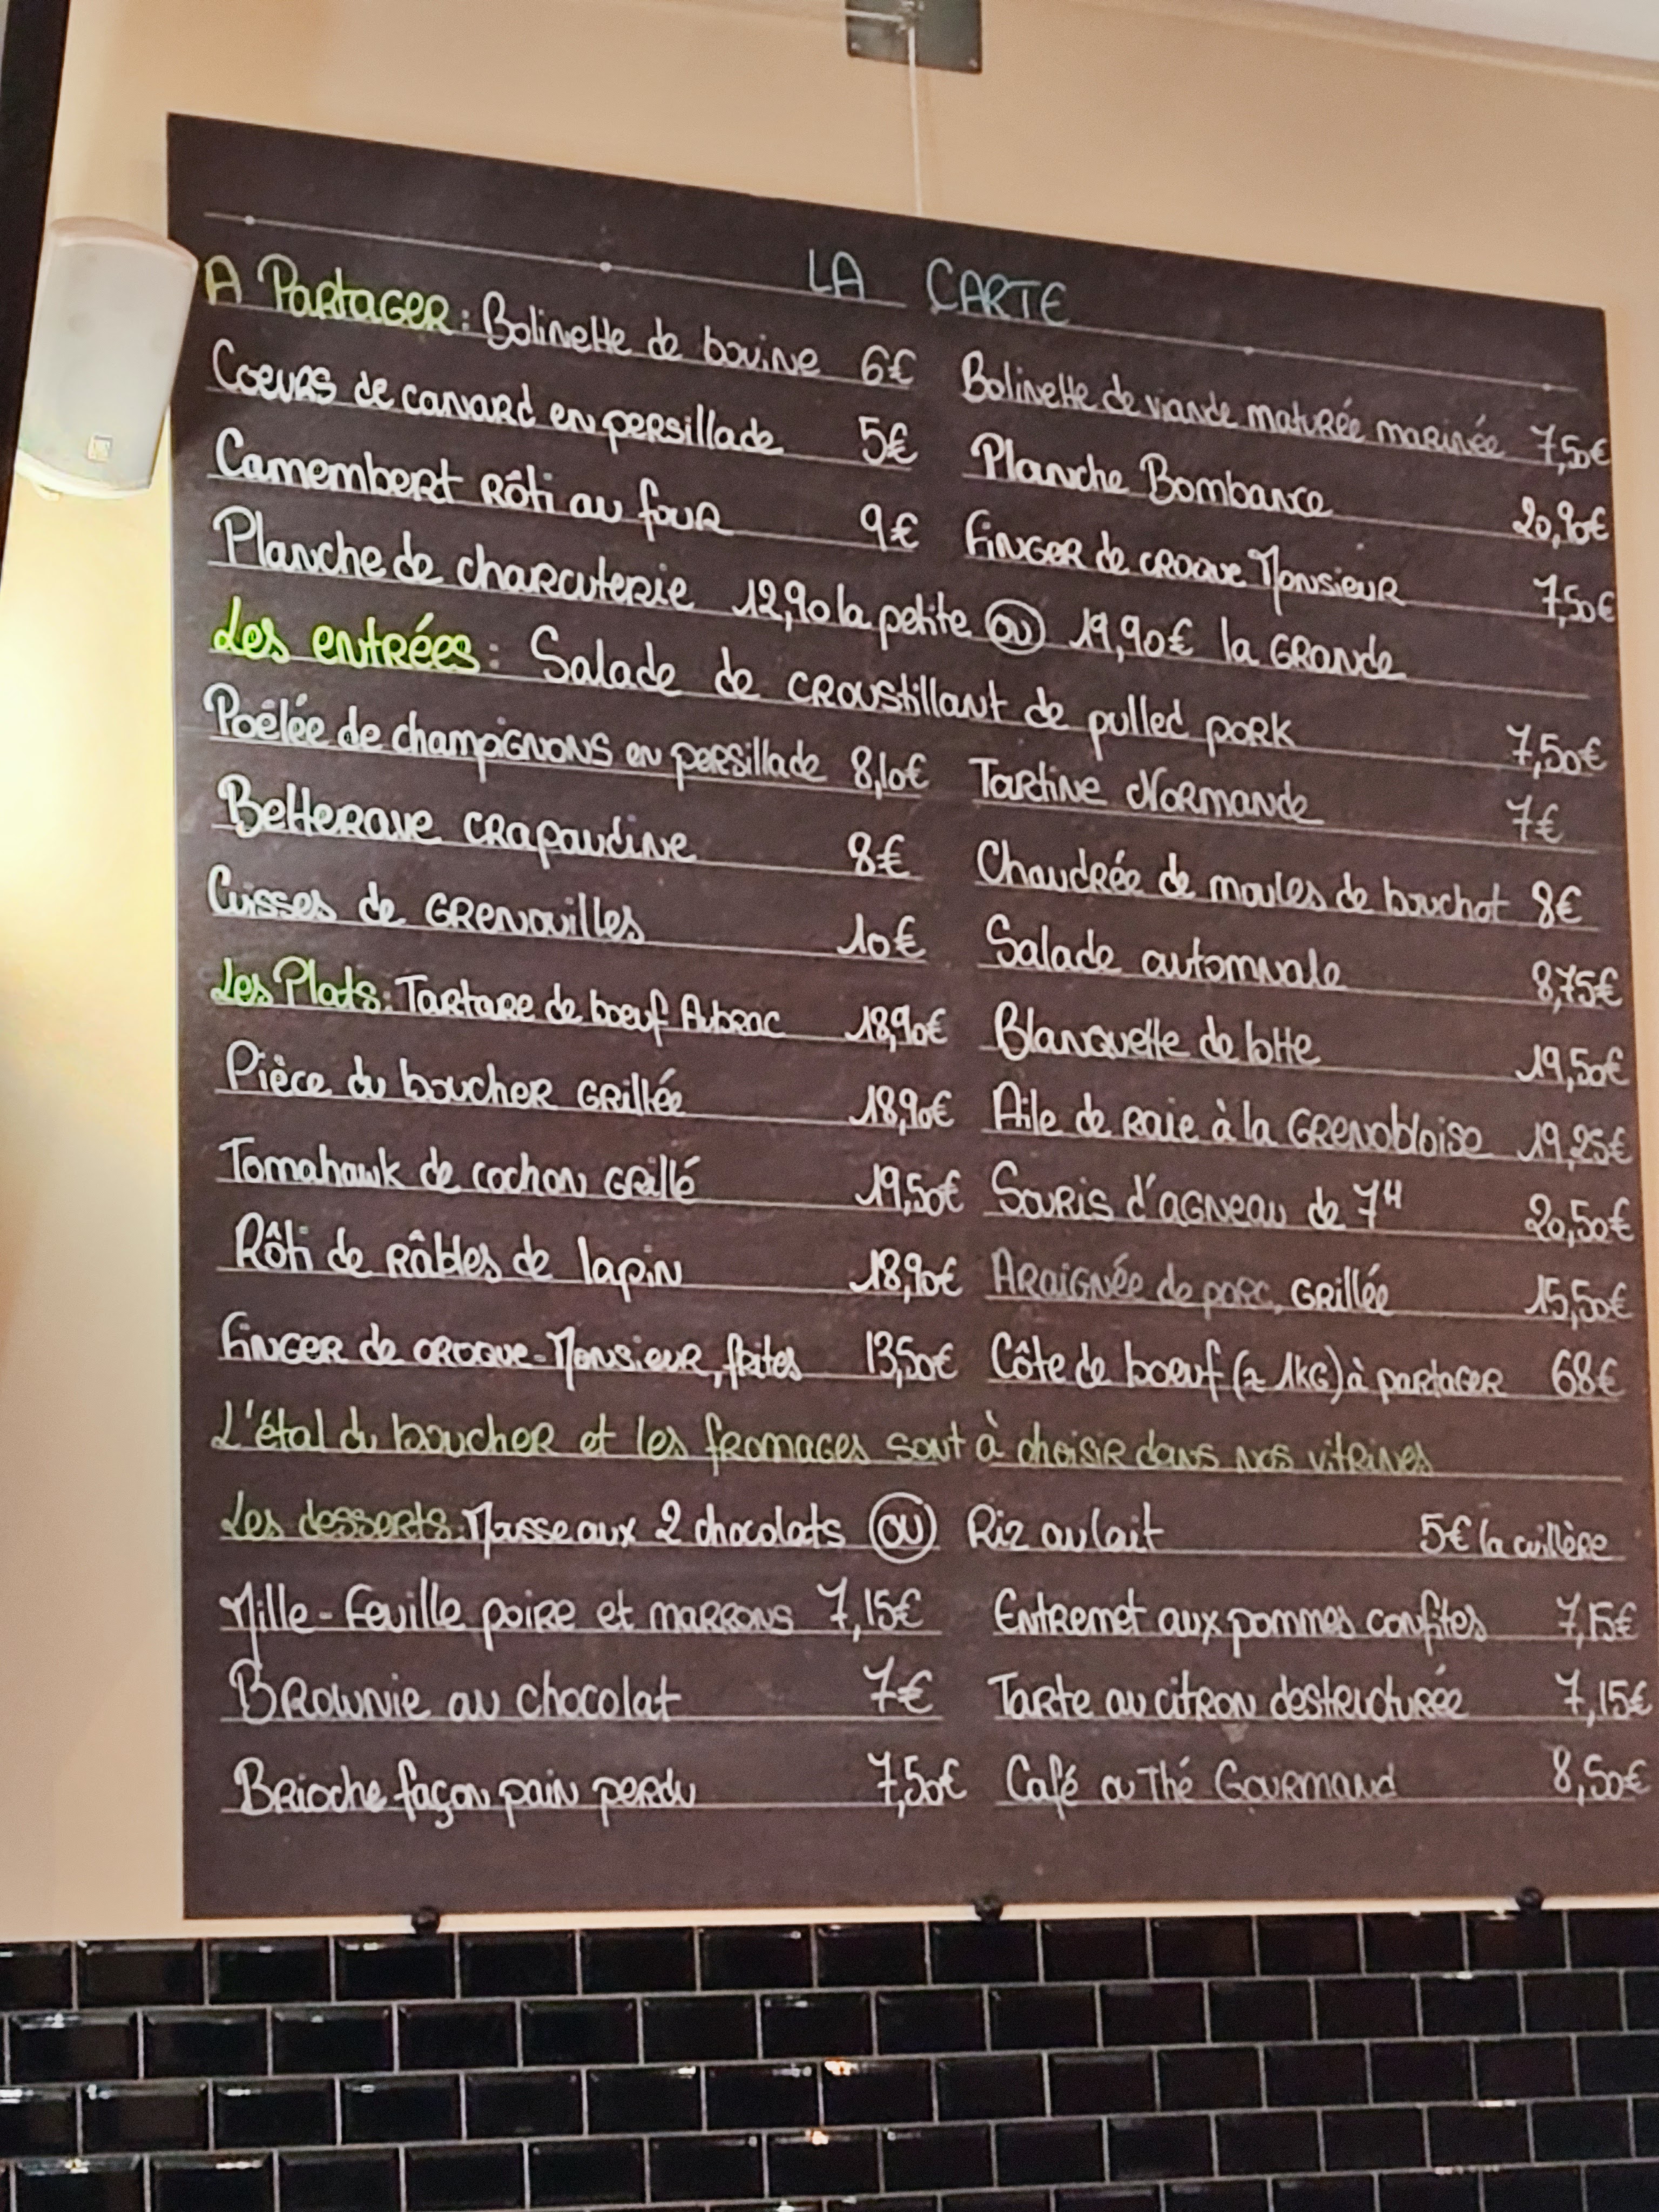 LA CARTE
A Partager : Bolinette de bovine 6€ Bolinette de viande maturée marinée 7,50€
Coeurs de canard en persillade 5€ Planche Bombance 20,90€
Camembert Rôti au four 9€ Finger de croque Monsieur 7,50€
Planche de charcuterie 12,90 la petite ou 19,90€ la Grande
Les entrées : Salade de croustillant de pulled pork 7,50€
Poêlée de champignons en persillade 8,10€ Tartine Normande 7€
Betterave crapaudine 8€ Chaudrée de moules de bouchot 8€
Cuisses de Grenouilles 10€ Salade automnale 8,75€
Les Plats : Tartare de boeuf Aubrac 18,90€ Blanquette de lotte 19,50€
Pièce du boucher Grillée 18,90€ Aile de raie à la Grenobloise 19,25€
Tomahawk de cochon Grillé 19,50€ Souris d'agneau de 7H 20,50€
Rôti de Râbles de lapin 18,90€ Araignée de porc, Grillée 15,50€
Finger de croque-Monsieur, frites 13,50€ Côte de boeuf (≈ 1kG) à partager 68€
L'étal du boucher et les fromages sont à choisir dans nos vitrines
Les desserts : Mousse aux 2 chocolats ou Riz au lait 5€ la cuillère
Mille-Feuille poire et marrons 7,15€ Entremet aux pommes confites 7,15€
Brownie au chocolat 7€ Tarte au citron destructurée 7,15€
Brioche façon pain perdu 7,50€ Café ou Thé Gourmand 8,50€